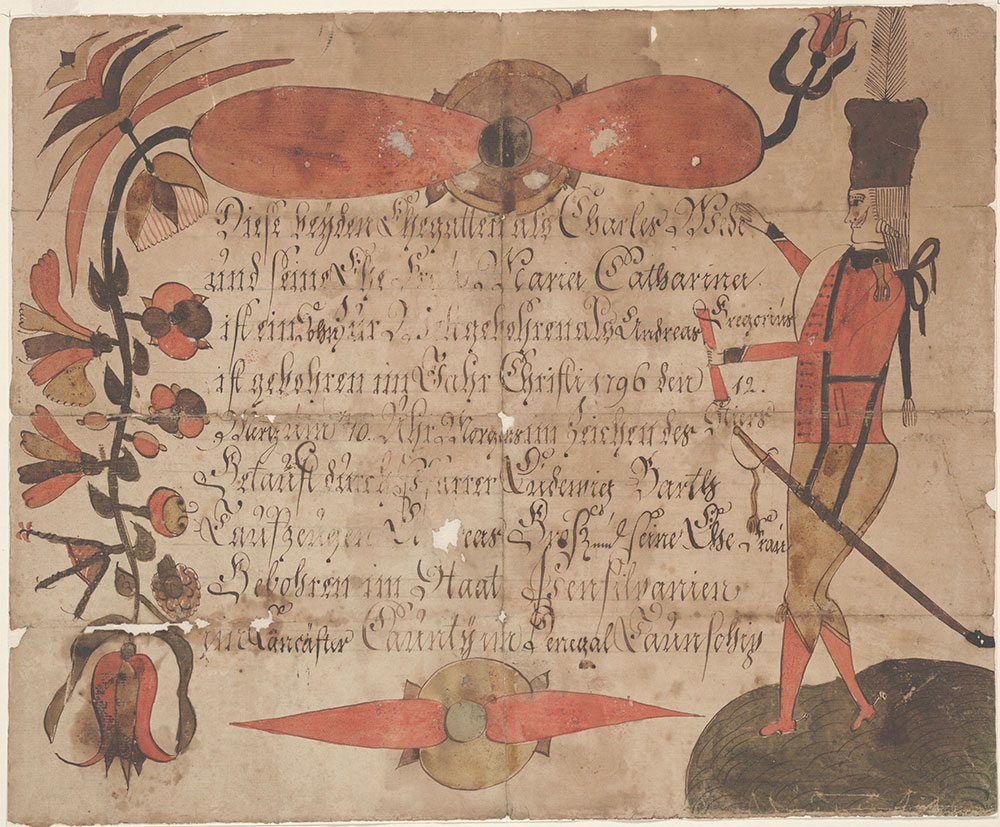 Diese beyden Ehegatten als Charles
und seine Ehe Frau Maria Catharina
ist ein Sohn zur Welt gebohren als Andreas Gregorius
ist gebohren im Jahr Christi 1796 den 12.
Mertz um 10. Uhr Morgens im Zeichen des Stiers
Getauft durch Pfarrer Ludewig Barth
Taufzeugen Andreas Groß und seine Ehe Frau
Gebohren im Staat Pensilvanien
in Lancaster Caunty im Tenegal Taunschip